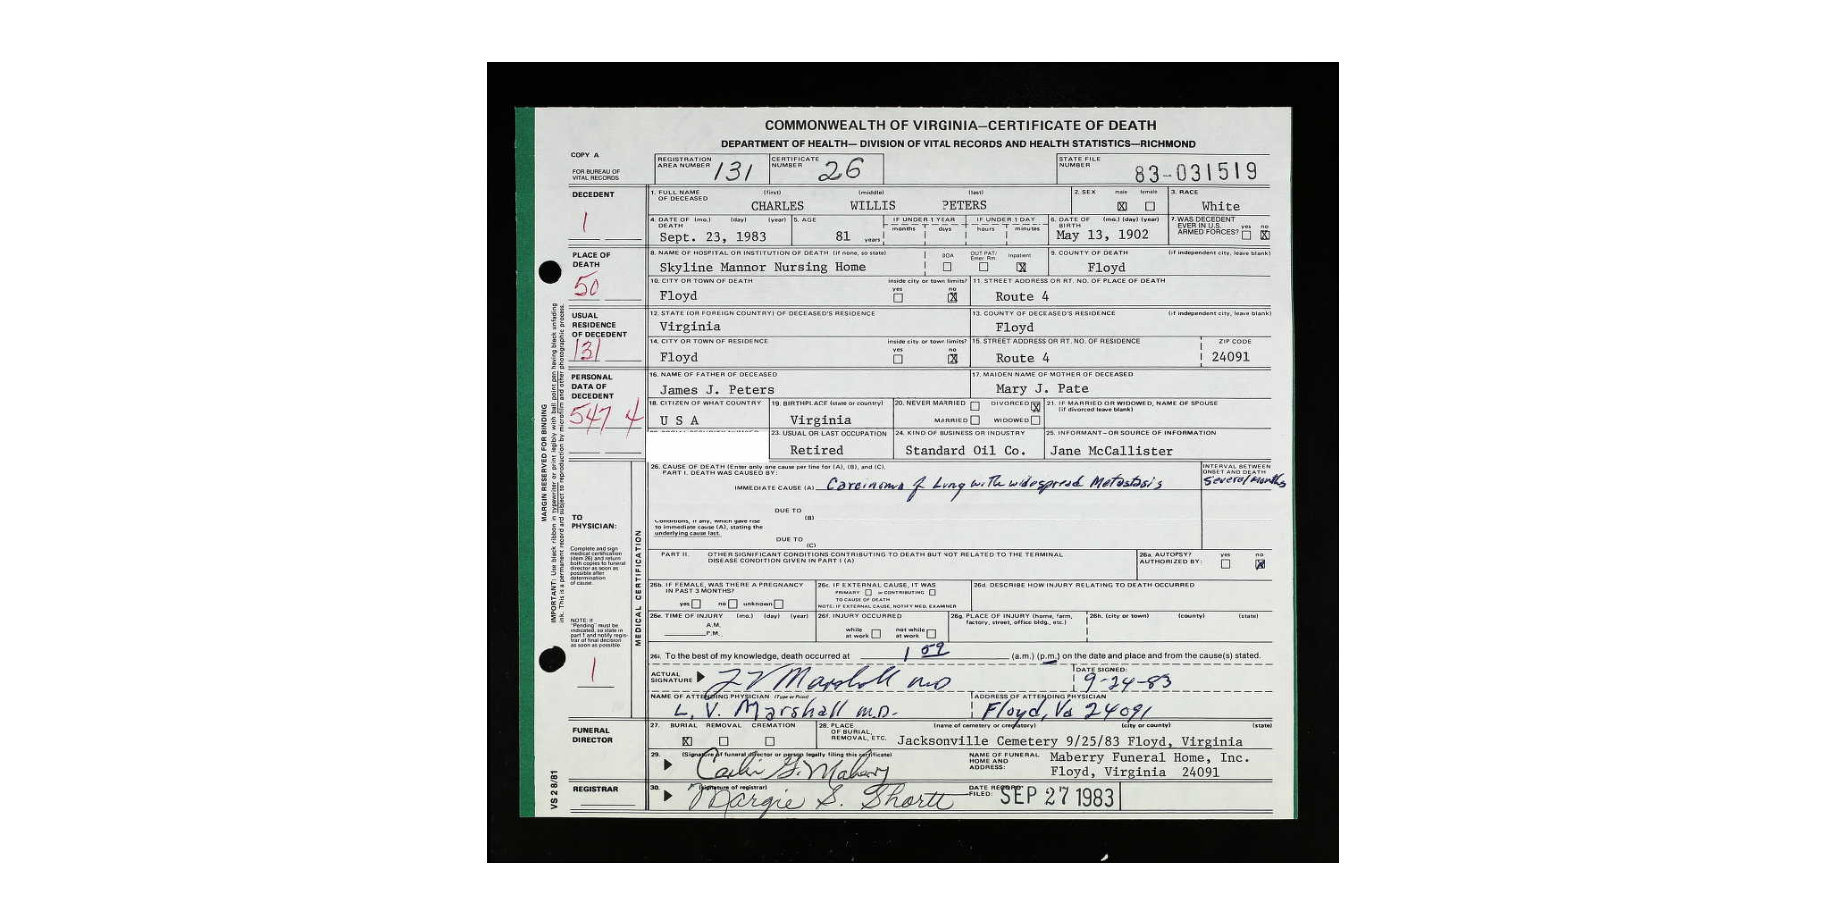 COMMONWEALTH OF VIRGINIA—CERTIFICATE OF DEATH
DEPARTMENT OF HEALTH— DIVISION OF VITAL RECORDS AND HEALTH STATISTICS—RICHMOND
COPY A
FOR BUREAU OF
VITAL RECORDS
REGISTRATION AREA NUMBER 131 CERTIFICATE NUMBER 26 STATE FILE NUMBER 83-031519
DECEDENT
1
1. FULL NAME OF DECEASED (first) (middle) (last) 2. SEX male female 3. RACE
CHARLES WILLIS PETERS X White
4. DATE OF DEATH (mo.) (day) (year) 5. AGE IF UNDER 1 YEAR IF UNDER 1 DAY 6. DATE OF BIRTH (mo.) (day) (year) 7. WAS DECEDENT EVER IN U.S. ARMED FORCES? yes no
months days hours minutes
Sept. 23, 1983 81 years May 13, 1902 X
PLACE OF
DEATH
50
8. NAME OF HOSPITAL OR INSTITUTION OF DEATH (if none, so state) DOA OUT PAT/ Emer. Rm. Inpatient 9. COUNTY OF DEATH (if independent city, leave blank)
Skyline Mannor Nursing Home X Floyd
10. CITY OR TOWN OF DEATH inside city or town limits? yes no 11. STREET ADDRESS OR RT. NO. OF PLACE OF DEATH
Floyd X Route 4
USUAL
RESIDENCE
OF DECEDENT
131
12. STATE (OR FOREIGN COUNTRY) OF DECEASED'S RESIDENCE 13. COUNTY OF DECEASED'S RESIDENCE (if independent city, leave blank)
Virginia Floyd
14. CITY OR TOWN OF RESIDENCE inside city or town limits? yes no 15. STREET ADDRESS OR RT. NO. OF RESIDENCE ZIP CODE
Floyd X Route 4 24091
PERSONAL
DATA OF
DECEDENT
547 4
16. NAME OF FATHER OF DECEASED 17. MAIDEN NAME OF MOTHER OF DECEASED
James J. Peters Mary J. Pate
18. CITIZEN OF WHAT COUNTRY 19. BIRTHPLACE (state or country) 20. NEVER MARRIED DIVORCED X 21. IF MARRIED OR WIDOWED, NAME OF SPOUSE (if divorced leave blank)
U S A Virginia MARRIED WIDOWED
23. USUAL OR LAST OCCUPATION 24. KIND OF BUSINESS OR INDUSTRY 25. INFORMANT—OR SOURCE OF INFORMATION
Retired Standard Oil Co. Jane McCallister
26. CAUSE OF DEATH (Enter only one cause per line for (A), (B), and (C). INTERVAL BETWEEN
PART I. DEATH WAS CAUSED BY: ONSET AND DEATH
IMMEDIATE CAUSE (A) Carcinoma of Lung with widespread Metastasis Several Months
DUE TO
(B)
Conditions, if any, which gave rise
to immediate cause (A), stating the
underlying cause last.
DUE TO
(C)
TO
PHYSICIAN:
Complete and sign
medical certification
(item 26) and return
both copies to funeral
director as soon as
possible after
determination
of cause.
MEDICAL CERTIFICATION
PART II. OTHER SIGNIFICANT CONDITIONS CONTRIBUTING TO DEATH BUT NOT RELATED TO THE TERMINAL
DISEASE CONDITION GIVEN IN PART I (A)
26a. AUTOPSY? AUTHORIZED BY: yes no X
26b. IF FEMALE, WAS THERE A PREGNANCY IN PAST 3 MONTHS? 26c. IF EXTERNAL CAUSE, IT WAS 26d. DESCRIBE HOW INJURY RELATING TO DEATH OCCURRED
PRIMARY or CONTRIBUTING
TO CAUSE OF DEATH
yes no unknown NOTE: IF EXTERNAL CAUSE, NOTIFY MED. EXAMINER
26e. TIME OF INJURY (mo.) (day) (year) 26f. INJURY OCCURRED 26g. PLACE OF INJURY (home, farm, factory, street, office bldg., etc.) 26h. (city or town) (county) (state)
A.M.
P.M. while at work not while at work
NOTE: If
"Pending" must be
indicated, so state in
part 1 and notify regis-
trar of final decision
as soon as possible.
1
26i. To the best of my knowledge, death occurred at 1 09 (a.m.) (p.m.) on the date and place and from the cause(s) stated.
ACTUAL SIGNATURE L V Marshall MD DATE SIGNED: 9-24-83
NAME OF ATTENDING PHYSICIAN (Type or Print) ADDRESS OF ATTENDING PHYSICIAN
L. V. Marshall M.D. Floyd, Va 24091
FUNERAL
DIRECTOR
27. BURIAL REMOVAL CREMATION 28. PLACE OF BURIAL, REMOVAL, ETC. (name of cemetery or crematory) (city or county) (state)
X Jacksonville Cemetery 9/25/83 Floyd, Virginia
29. (Signature of funeral director or person legally filing this certificate) NAME OF FUNERAL HOME AND ADDRESS: Maberry Funeral Home, Inc.
Floyd, Virginia 24091
REGISTRAR
30. (signature of registrar) DATE RECORD FILED: SEP 27 1983
Margie S. Shortt
MARGIN RESERVED FOR BINDING
VS 2 8/81